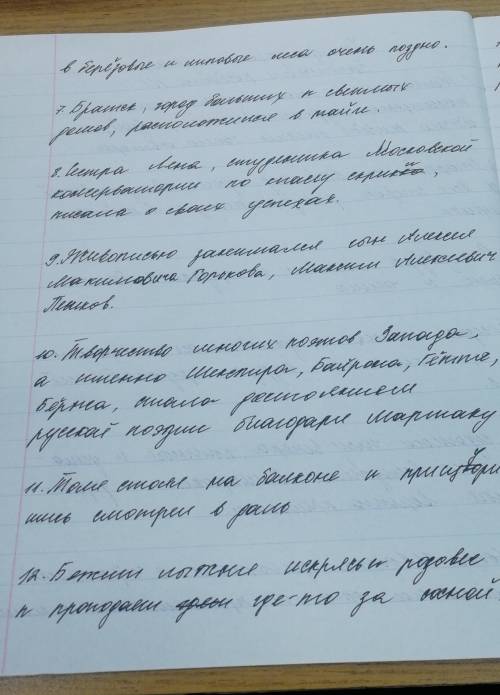 в берёзовые и липовые леса очень поздно.
7. Братск, город больших и светлых
домов, расположился в тайге.
8. Сестра Лена, студентка Московской
консерватории по классу скрипки,
писала о своих успехах.
9. Живописью занимался сын Алексея
Максимовича Горького, Максим Алексеевич
Пешков.
10. Творчество многих поэтов Запада,
а именно Шекспира, Байрона, Гейне,
Бёрнса, стало достоянием
русской поэзии благодаря Маршаку
11. Толя стоял на балконе и прищурив
шись смотрел в даль
12. Бежит лыжня искрясь и
и пропадает где-то за сосной